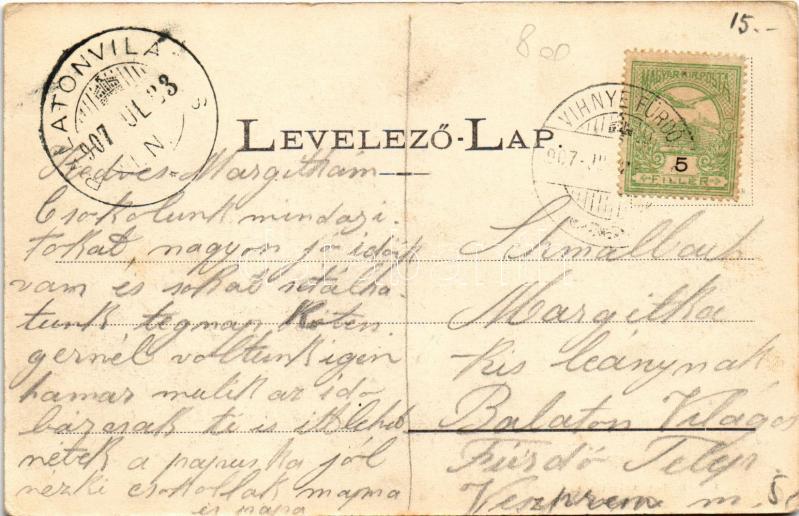 15.-
BALATONVILÁGOS
907 JUL 23
VIHNYE FÜRDŐ
907 JUL
MAGYAR KIR. POSTA
5
FILLÉR
LEVELEZŐ-LAP.
Kedves Margitkám
Csokolunk mindazi-
tokat, nagyon jó időnk
van és sokat sétálha-
tunk tegnap
gernél voltunk igen
hamar mulik az idő
bárcsak ti is itt lehet
netek a papuska jól
nezki csokollak mama
is papa
Schmalbach
Margitka
kis leánynak
Balaton Világos
Fürdő Telep.
Veszprem m.